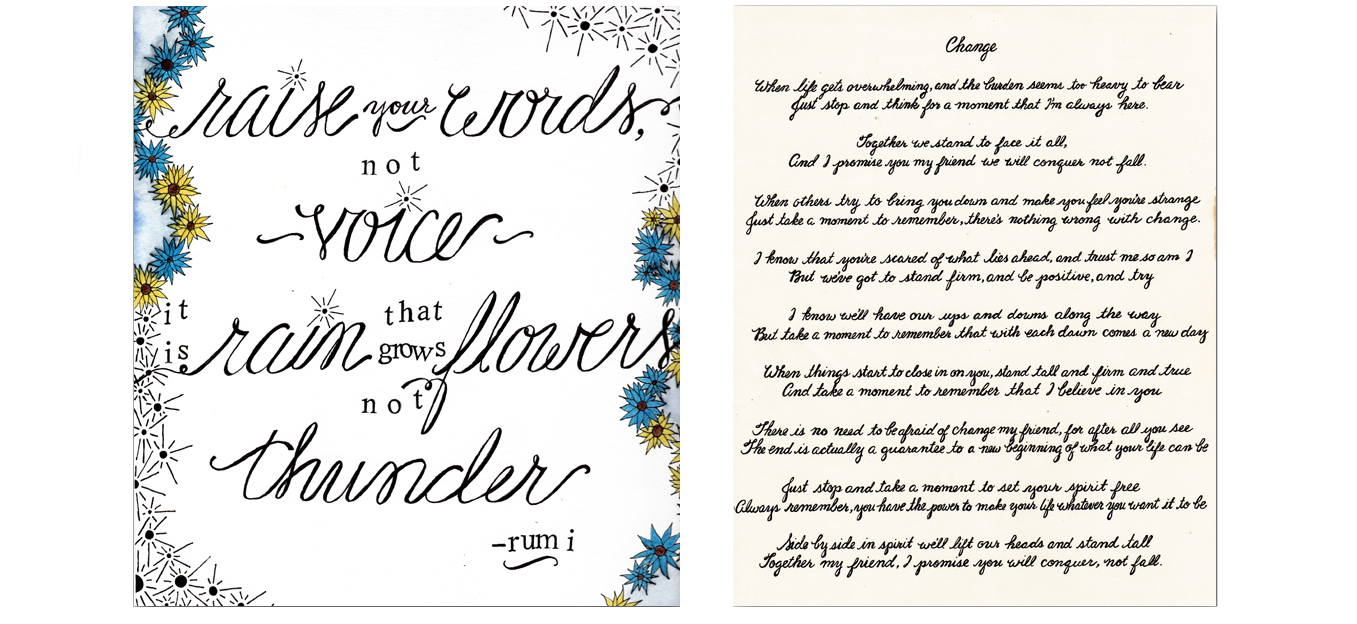 raise your words,
not
voice
it is rain that grows flowers
not
thunder
-rumi
Change
When life gets overwhelming, and the burden seems too heavy to bear
Just stop and think for a moment that I'm always here.
Together we stand to face it all,
And I promise you my friend we will conquer not fall.
When others try to bring you down and make you feel you're strange
Just take a moment to remember, there's nothing wrong with change.
I know that you're scared of what lies ahead, and trust me so am I
But we've got to stand firm, and be positive, and try
I know we'll have our ups and downs along the way
But take a moment to remember that with each dawn comes a new day
When things start to close in on you, stand tall and firm and true
And take a moment to remember that I believe in you
There is no need to be afraid of change my friend, for after all you see
The end is actually a guarantee to a new beginning of what your life can be
Just stop and take a moment to set your spirit free
Always remember, you have the power to make your life whatever you want it to be
Side by side in spirit we'll lift our heads and stand tall
Together my friend, I promise you will conquer, not fall.